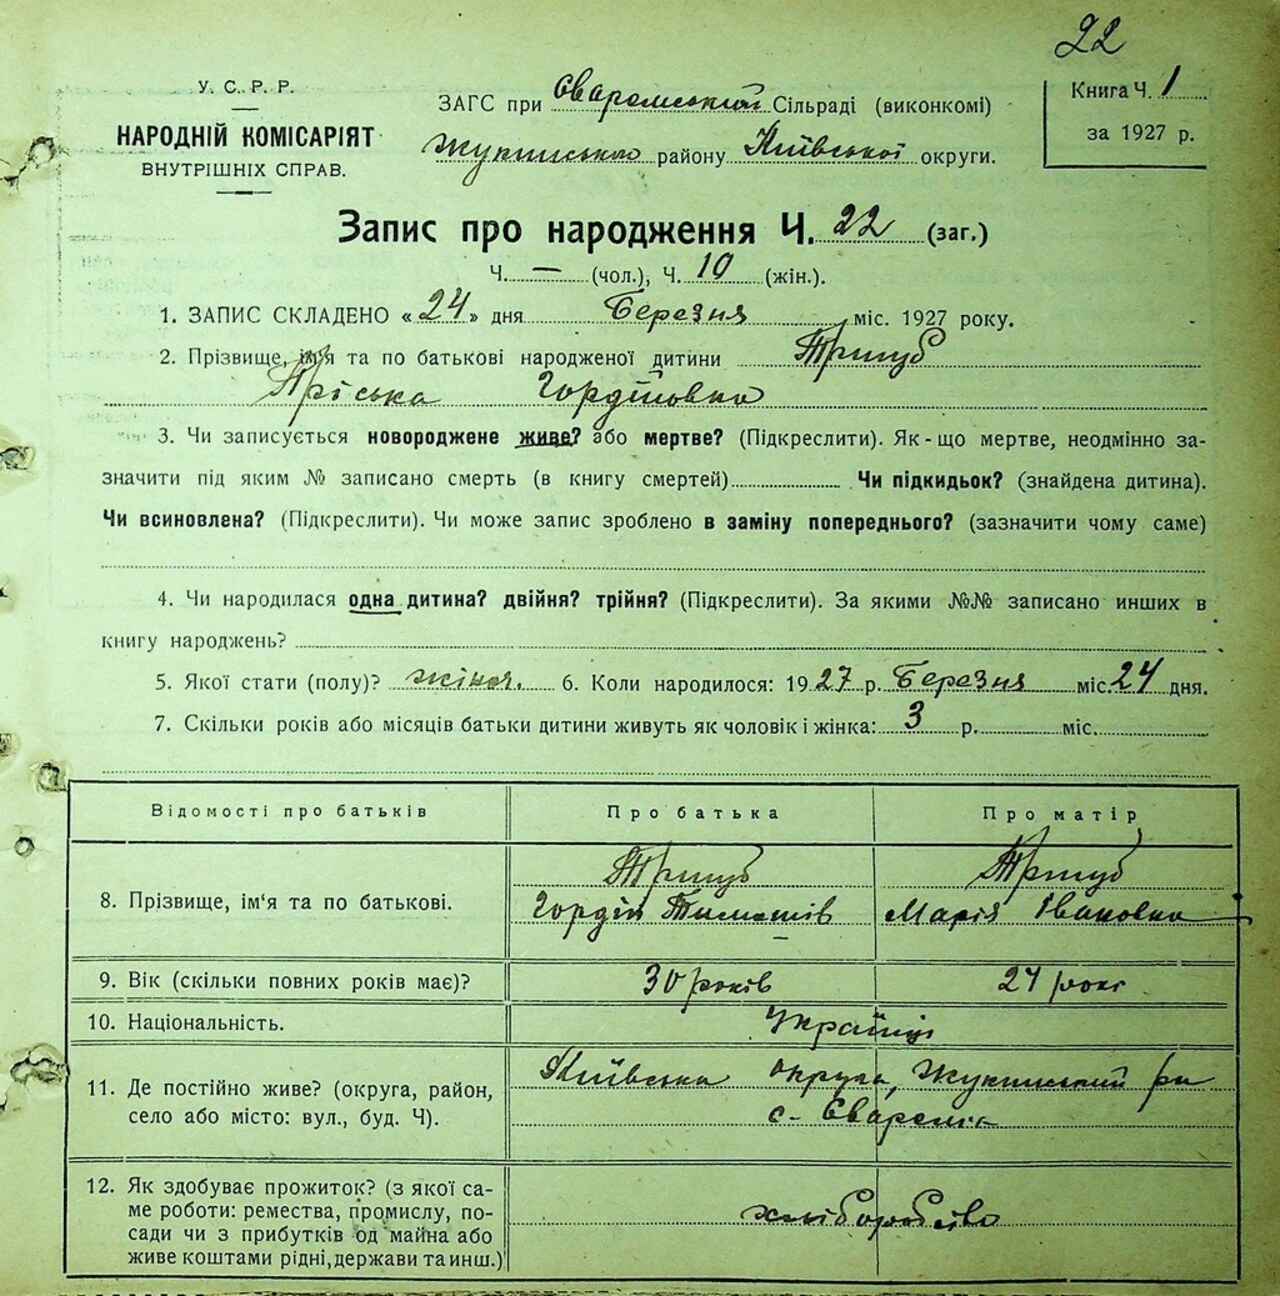 22
У. С. Р. Р.
НАРОДНІЙ КОМІСАРІЯТ
ВНУТРІШНІХ СПРАВ.
ЗАГС при Сваромський Сільраді (виконкомі)
Жукинського району Київської округи.
Книга Ч. 1
за 1927 р.
Запис про народження Ч. 22 (заг.)
Ч. — (чол.), Ч. 10 (жін.).
1. ЗАПИС СКЛАДЕНО «24» дня Березня міс. 1927 року.
2. Прізвище, ім'я та по батькові народженої дитини Тригуб
Пріська Гордіївна
3. Чи записується новороджене живе? або мертве? (Підкреслити). Як-що мертве, неодмінно за-
значити під яким № записано смерть (в книгу смертей) Чи підкидьок? (знайдена дитина).
Чи всиновлена? (Підкреслити). Чи може запис зроблено в заміну попереднього? (зазначити чому саме)
4. Чи народилася одна дитина? двійня? трійня? (Підкреслити). За якими №№ записано инших в
книгу народжень?
5. Якої стати (полу)? жіноч. 6. Коли народилося: 1927 р. Березня міс. 24 дня.
7. Скільки років або місяців батьки дитини живуть як чоловік і жінка: 3 р. міс.
Відомості про батьків Про батька Про матір
8. Прізвище, ім'я та по батькові.
Тригуб Тригуб
Гордій Тимошів Марія Івановна
9. Вік (скільки повних років має)? 30 років 24 рокі
10. Національність. Українці
11. Де постійно живе? (округа, район,
село або місто: вул., буд. Ч).
Київська округа, Жукинський рн
с. Сваромя
12. Як здобуває прожиток? (з якої са-
ме роботи: ремества, промислу, по-
сади чи з прибутків од майна або
живе коштами рідні, держави та инш.)
хліборобство